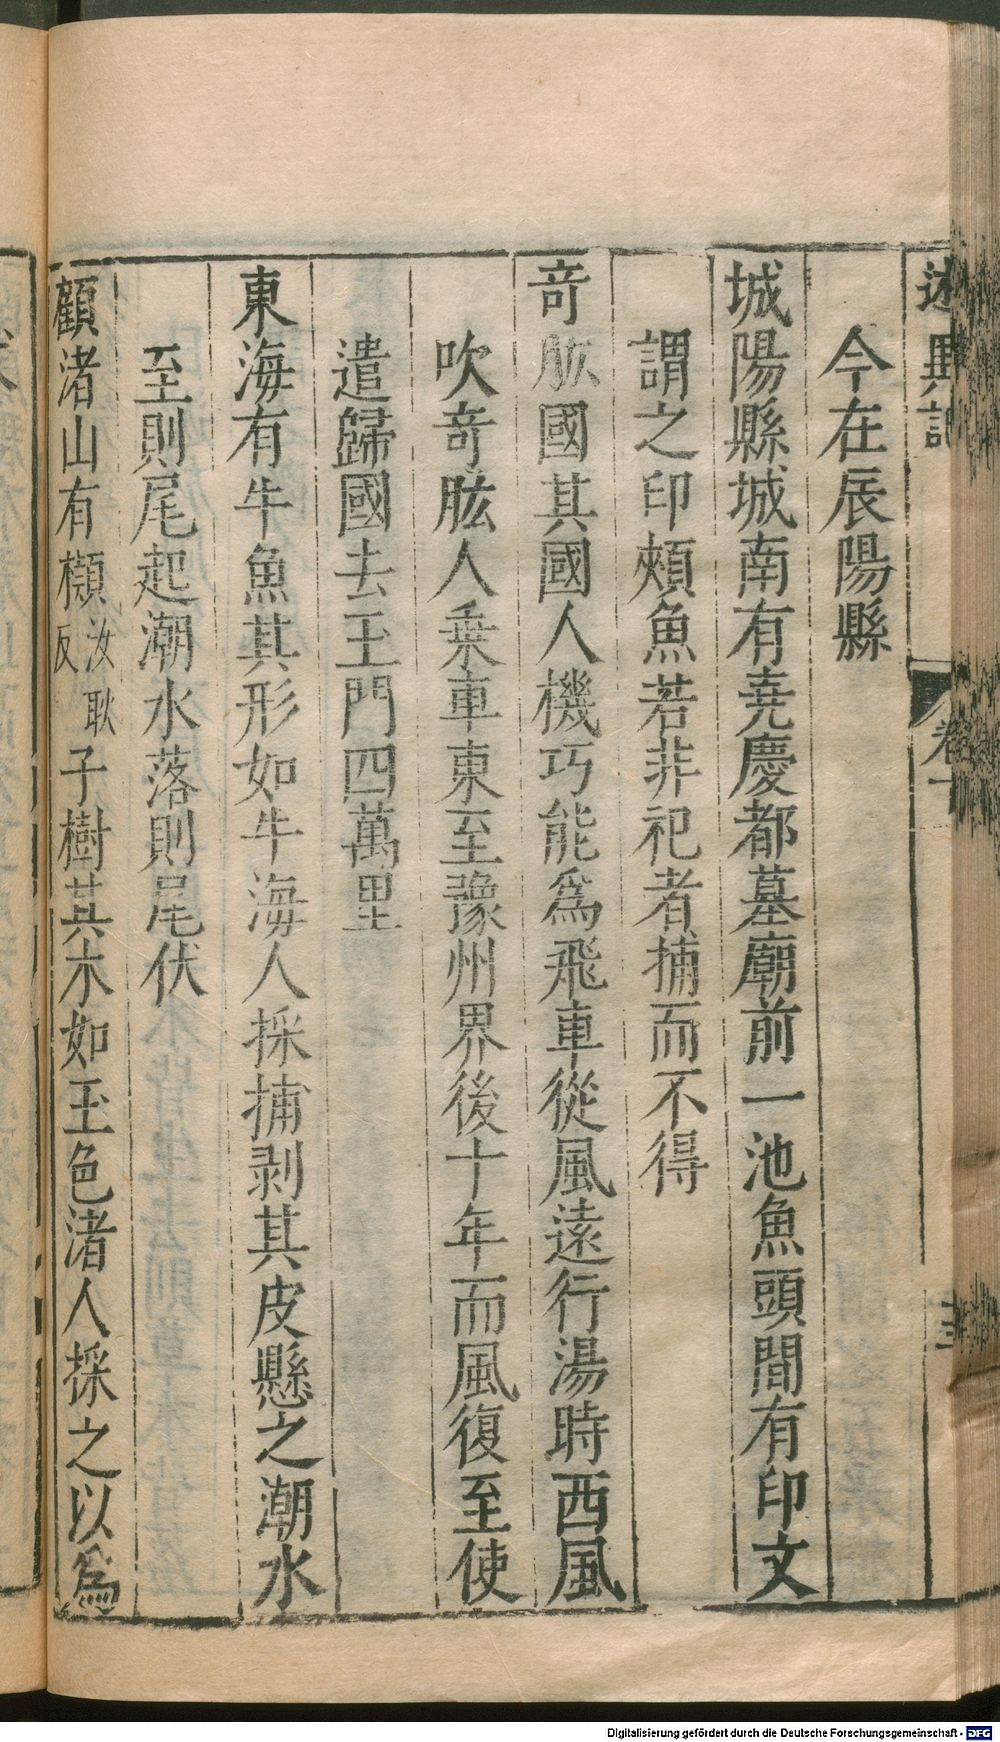 述異記
卷下
今在辰陽縣
城陽縣城南有堯慶都墓廟前一池魚頭間有印文
謂之印頰魚若非祀者捕而不得
奇肱國其國人機巧能爲飛車從風遠行湯時西風
吹奇肱人乗車東至豫州界後十年而風復至使
遣歸國去玉門四萬里
東海有牛魚其形如牛海人採捕剥其皮懸之潮水
至則尾起潮水落則尾伏
顧渚山有櫇汝耿反子樹其木如玉色渚人採之以爲
Digitalisierung gefördert durch die Deutsche Forschungsgemeinschaft - DFG